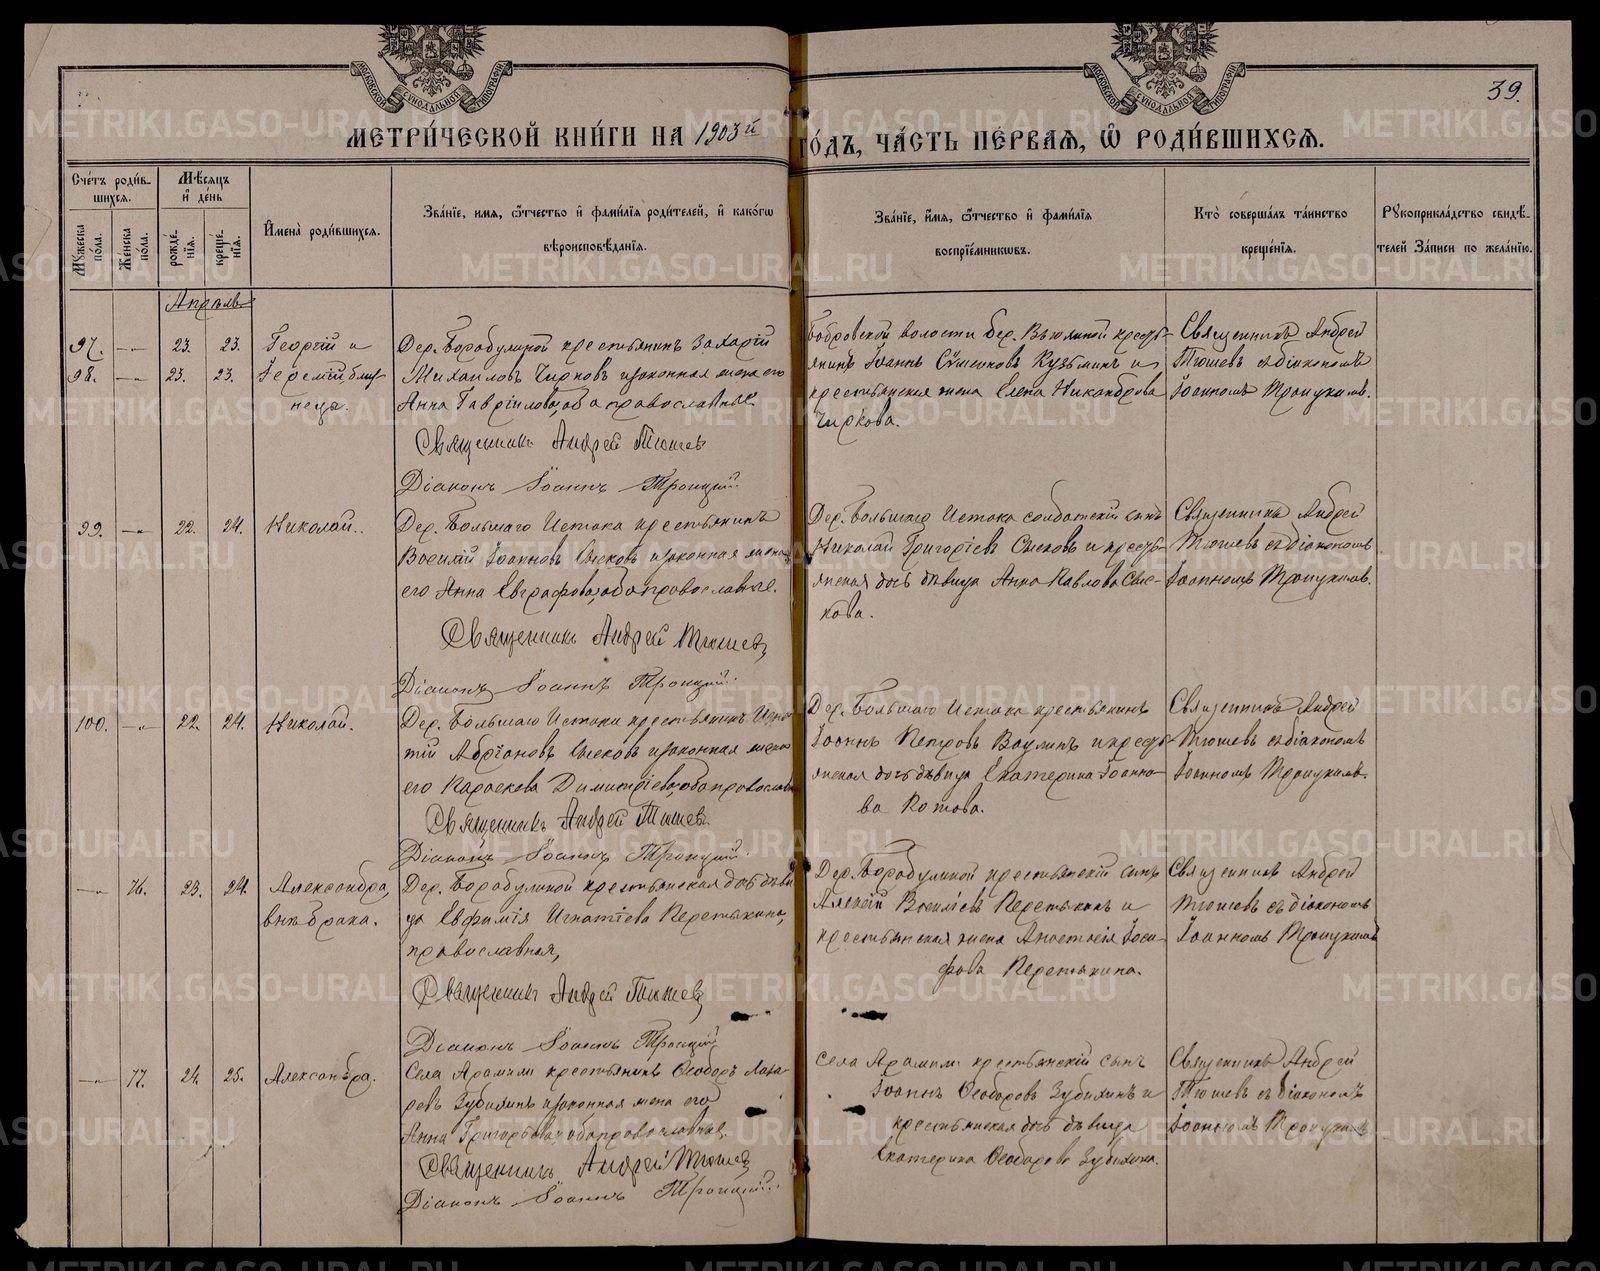 39.
МЕТРИ́ЧЕСКОЙ КНИ́ГИ НА 1903й ГО́ДЪ, ЧА́СТЬ ПЕ́РВАЯ, Ѡ РОДИ́ВШИХСЯ.
Сче́тъ роди́в-
шихся.
Мꙋ́жеска по́ла.
Же́нска по́ла.
Мѣ́сяцъ и де́нь
рожде́-
нїя.
креще́-
нїя.
Имена̀ роди́вшихся.
Зва́нїе, имя, ѻ́тчество и фами́лїя роди́телей, и како́гѡ
вѣроисповѣ́данїя.
Зва́нїе, и́мя, ѻ́тчество и фами́лїя
воспрїе́мникѡвъ.
Кто̀ соверша́лъ та́инство
креще́нїя.
Рꙋкоприкла́дство свидѣ́-
телей За́писи по жела́нїю.
Апрѣль
97. 23. 23. Георгій и
98. 23. 23. Іеремій близ
нецы.
Дер. Борабулиной крестьянинъ Захарій
Михаиловъ Чирковъ и законная жена его
Анна Гавріилова, оба православные.
Священникъ Андрей Тюшев
Діаконъ Іоаннъ Троицкій
Бобровской волости дер. Вьюхиной кресть-
янинъ Іоаннъ Сѵмеоновъ Кузьминъ и
крестьянская жена Елена Никандрова
Чиркова.
Священникъ Андрей
Тюшевъ съ діакономъ
Іоанномъ Троицкимъ.
99. 22. 24. Николай.
Дер. Большаго Истока крестьянинъ
Василій Іоанновъ Сысковъ и законная жена
его Анна Евграфова, оба православные.
Священникъ Андрей Тюшев
Діаконъ Іоаннъ Троицкій
Дер. Большаго Истока солдатскій сынъ
Николай Григоріевъ Сысковъ и кресть-
янская дочь дѣвица Анна Павлова Сыс-
кова.
Священникъ Андрей
Тюшевъ съ діакономъ
Іоанномъ Троицкимъ.
100. 22. 24. Николай.
Дер. Большаго Истока крестьянинъ Игна-
тій Адріановъ Сысковъ и законная жена
его Параскева Димитріева, оба православн
Священникъ Андрей Тюшев
Діаконъ Іоаннъ Троицкій
Дер. Большаго Истока крестьянинъ
Іоаннъ Петровъ Ваулинъ и кресть-
янская дочь дѣвица Екатерина Іоанно-
ва Котова.
Священникъ Андрей
Тюшевъ съ діакономъ
Іоанномъ Троицкимъ.
76. 23. 24. Александра,
внѣ брака.
Дер. Борабулиной крестьянская дочь дѣви
ца Евфимія Игнатіева Перетыкина,
православная,
Священникъ Андрей Тюшев
Діаконъ Іоаннъ Троицкій
Дер. Борабулиной крестьянскій сынъ
Алексій Василіевъ Перетыкинъ и
крестьянская жена Анастасія Іоси-
фова Перетыкина.
Священникъ Андрей
Тюшевъ съ діакономъ
Іоанномъ Троицкимъ
77. 24. 25. Александра.
Села Арамили крестьянинъ Ѳеодоръ Лаза-
ревъ Зубихинъ и законная жена его
Анна Григорьева, оба православные,
Священникъ Андрей Тюшев
Діаконъ Іоаннъ Троицкій
Села Арамили крестьянскій сынъ
Іоаннъ Ѳеодоровъ Зубихинъ и
крестьянская дочь дѣвица
Екатерина Ѳеодорова Зубихина.
Священникъ Андрей
Тюшевъ съ діакономъ
Іоанномъ Троицкимъ
METRIKI.GASO-URAL.RU